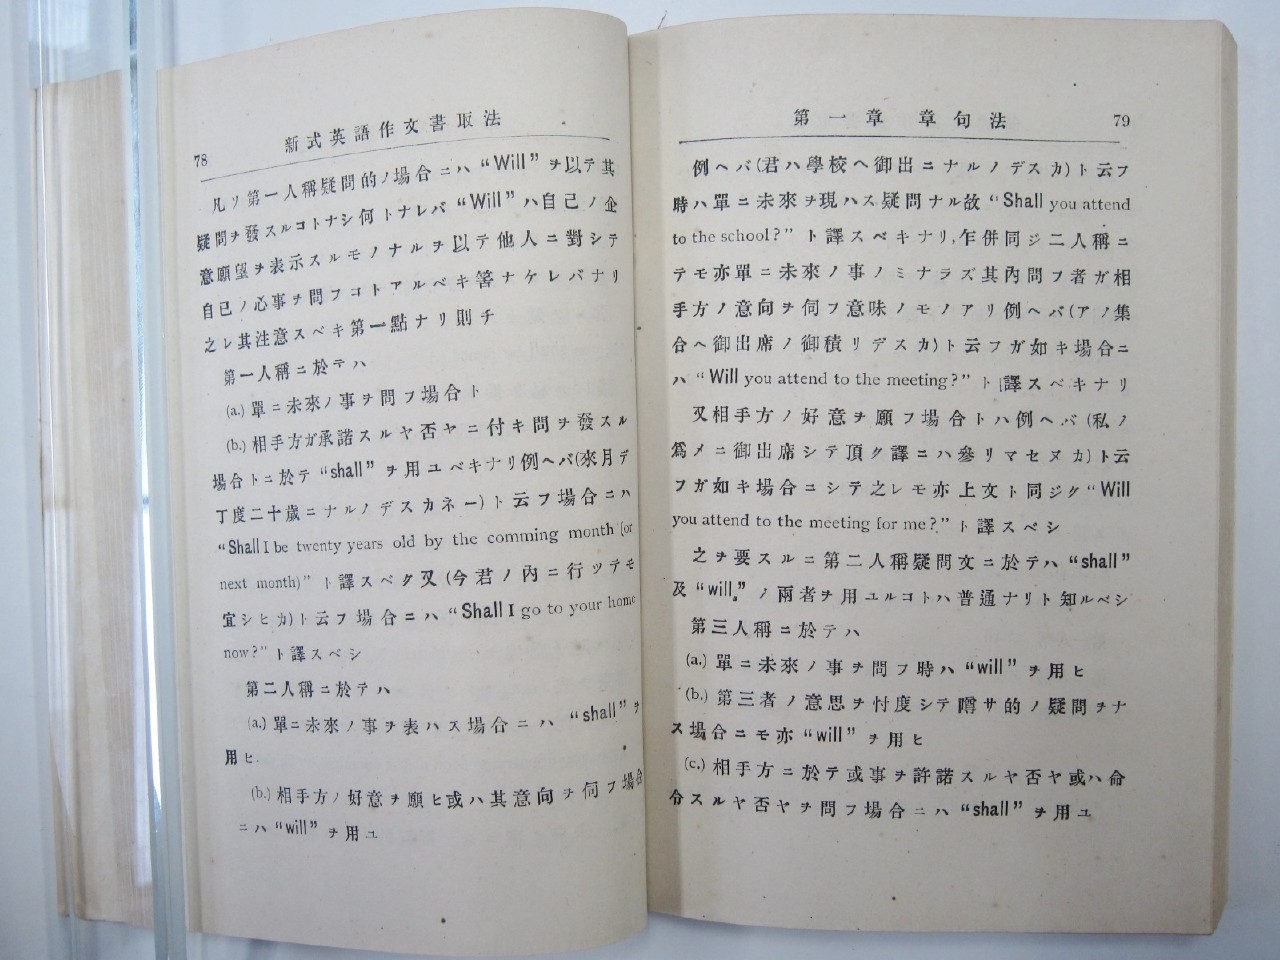 78
新式英語作文書取法
凡ソ第一人稱疑問的ノ場合ニハ “Will” ヲ以テ其
疑問ヲ發スルコトナシ何トナレバ “Will” ハ自己ノ企
意願望ヲ表示スルモノナルヲ以テ他人ニ對シテ
自己ノ必事ヲ問フコトアルベキ筈ナケレバナリ
之レ其注意スベキ第一點ナリ則チ
第一人稱ニ於テハ
(a.) 單ニ未來ノ事ヲ問フ場合ト
(b.) 相手方ガ承諾スルヤ否ヤニ付キ問ヲ發スル
場合トニ於テ “shall” ヲ用ユベキナリ例ヘバ(來月デ
丁度二十歲ニナルノデスカネー)ト云フ場合ニハ
“Shall I be twenty years old by the comming month (or
next month)” ト譯スベク又 (今君ノ內ニ行ッテモ
宜シヒカ)ト云フ場合ニハ “Shall I go to your home
now?” ト譯スベシ
第二人稱ニ於テハ
(a.) 單ニ未來ノ事ヲ表ハス場合ニハ “shall” ヲ
用ヒ.
(b.) 相手方ノ好意ヲ願ヒ或ハ其意向ヲ伺フ場合
ニハ “will” ヲ用ユ
第一章 章句法
79
例ヘバ(君ハ學校ヘ御出ニナルノデスカ)ト云フ
時ハ單ニ未來ヲ現ハス疑問ナル故 “Shall you attend
to the school?” ト譯スベキナリ, 乍併同ジ二人稱ニ
テモ亦單ニ未來ノ事ノミナラズ其內問フ者ガ相
手方ノ意向ヲ伺フ意味ノモノアリ例ヘバ(アノ集
合ヘ御出席ノ御積リデスカ)ト云フガ如キ場合ニ
ハ “Will you attend to the meeting?” ト譯スベキナリ
又相手方ノ好意ヲ願フ場合トハ例ヘバ (私ノ
爲メニ御出席シテ頂ク譯ニハ參リマセヌカ)ト云
フガ如キ場合ニシテ之レモ亦上文ト同ジク “Will
you attend to the meeting for me?” ト譯スベシ
之ヲ要スルニ第二人稱疑問文ニ於テハ “shall”
及 “will” ノ兩者ヲ用ユルコトハ普通ナリト知ルベシ
第三人稱ニ於テハ
(a.) 單ニ未來ノ事ヲ問フ時ハ “will” ヲ用ヒ
(b.) 第三者ノ意思ヲ忖度シテ噂サ的ノ疑問ヲナ
ス場合ニモ亦 “will” ヲ用ヒ
(c.) 相手方ニ於テ或事ヲ許諾スルヤ否ヤ或ハ命
令スルヤ否ヤヲ問フ場合ニハ “shall” ヲ用ユ